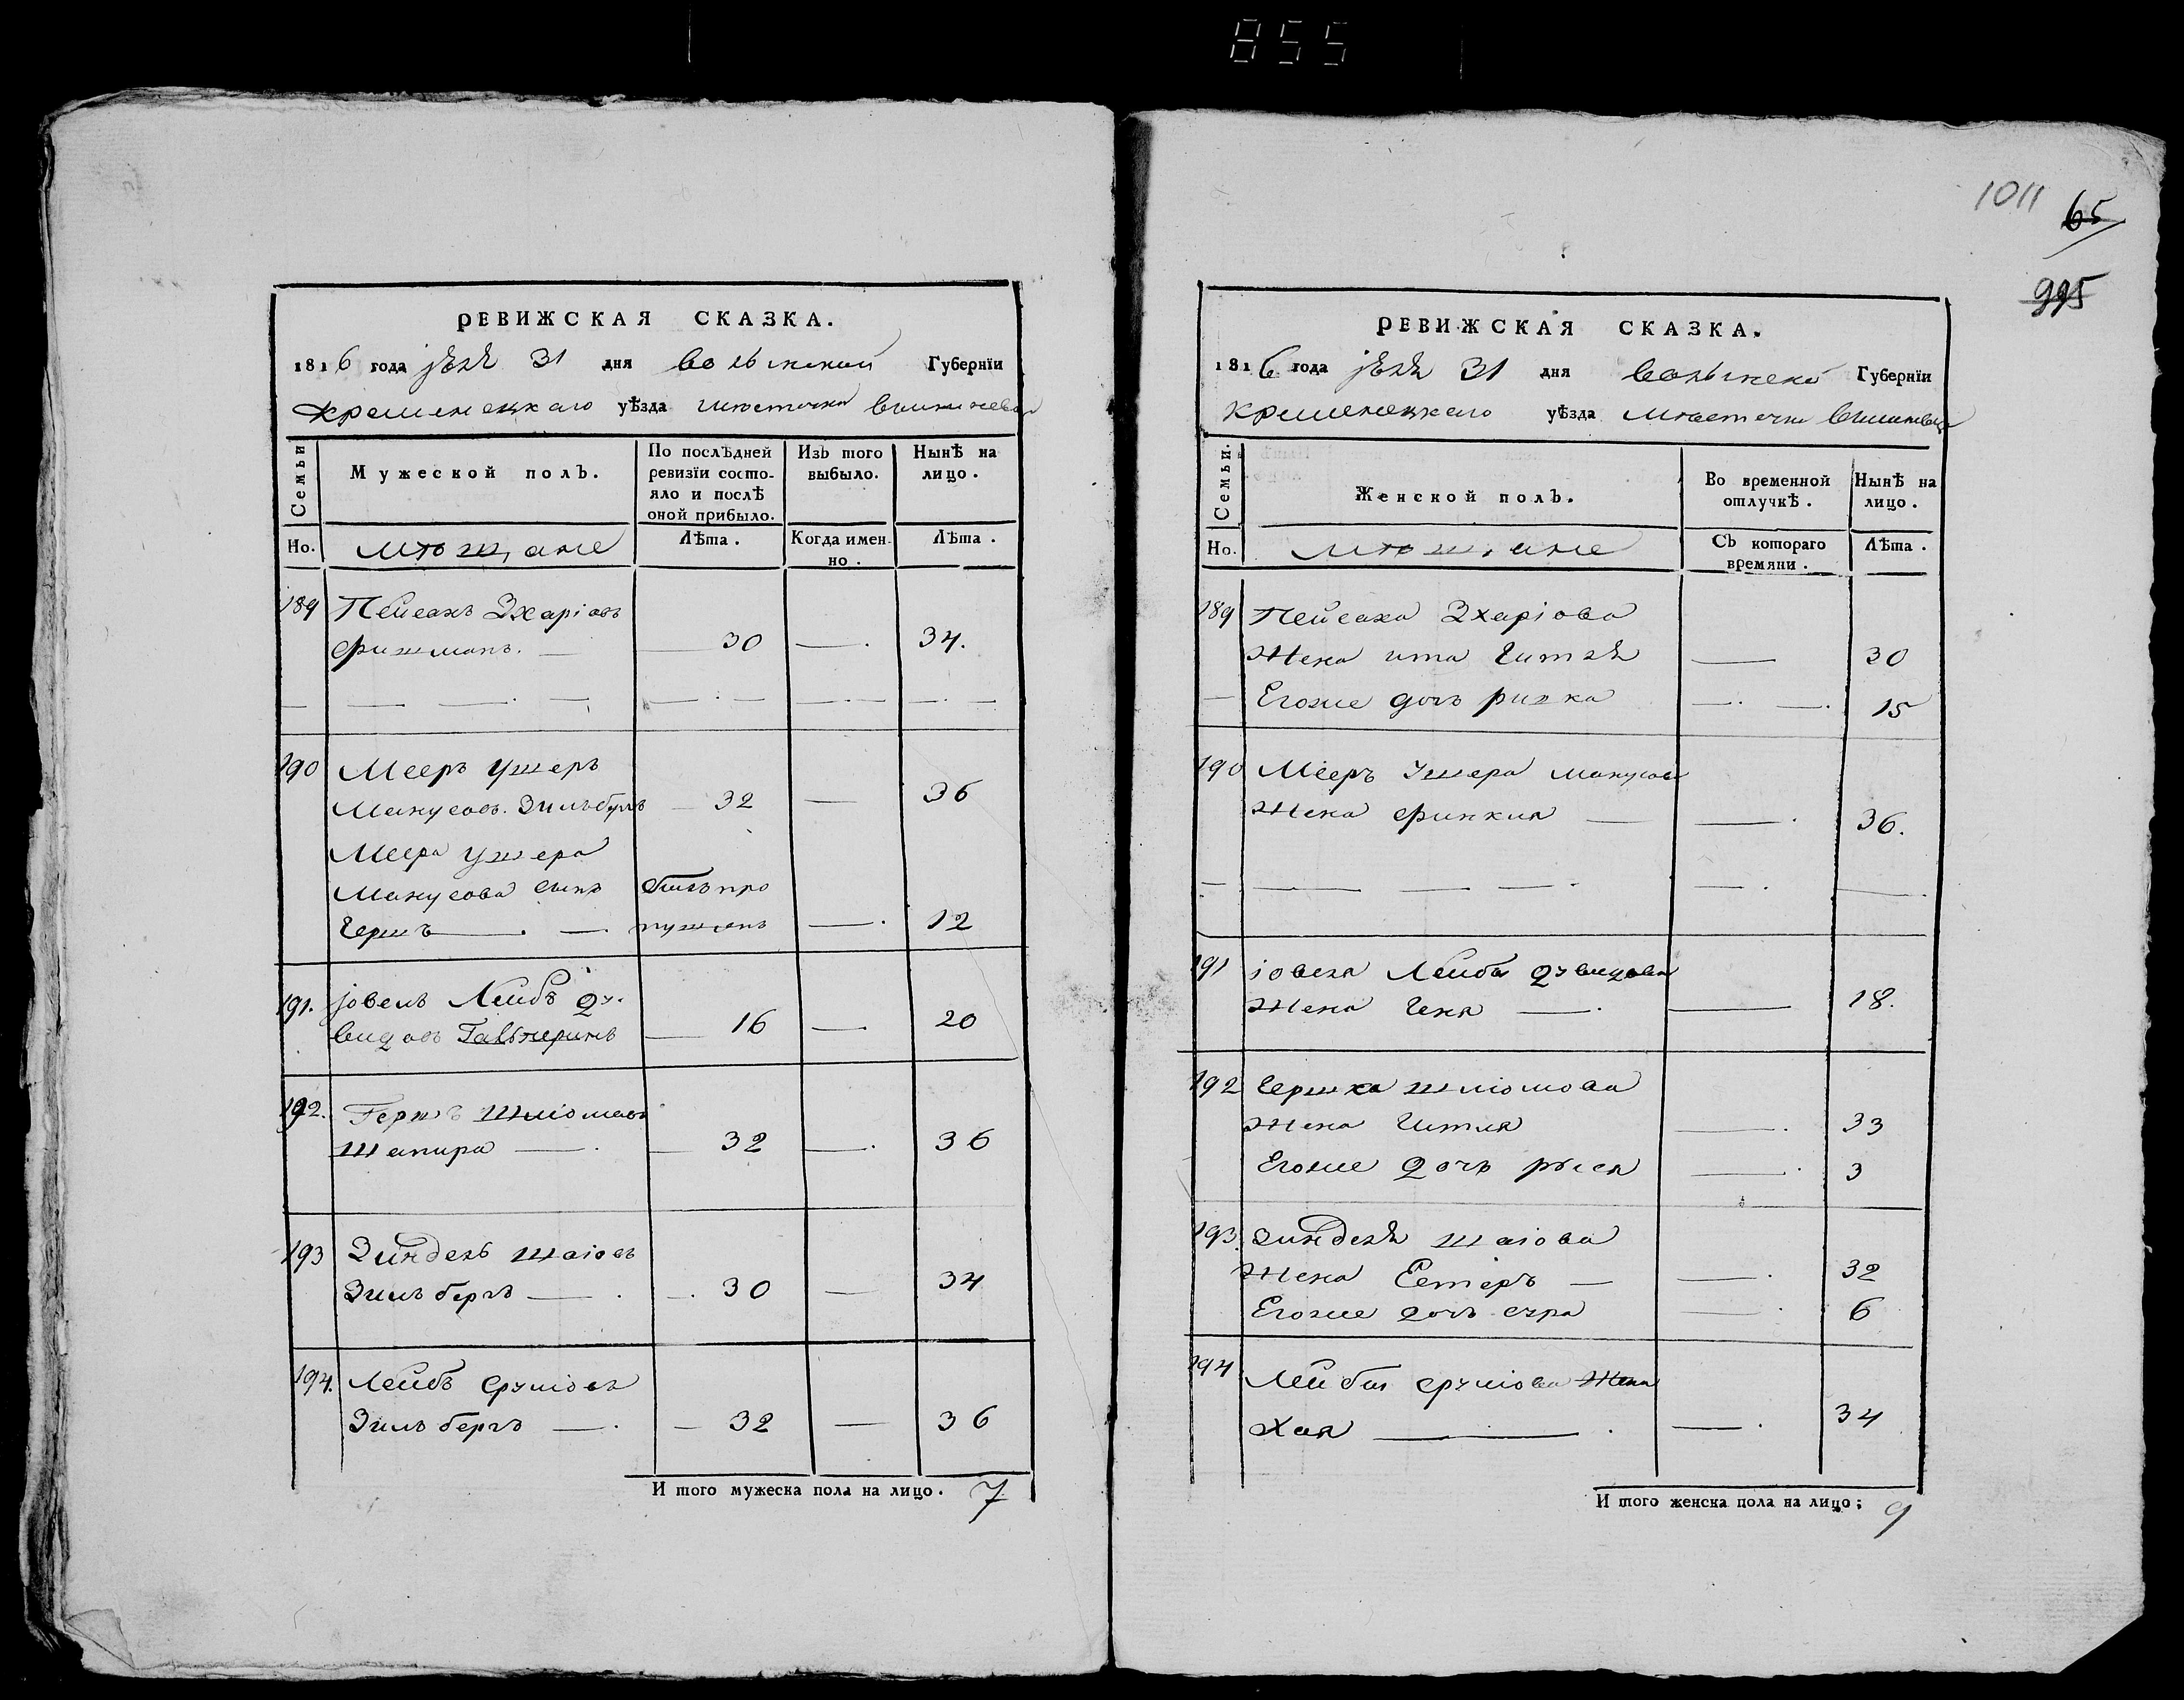 855
1011
65
995
РЕВИЖСКАЯ СКАЗКА.
1816 года 31 дня волынской Губернїи
Кременецкаго уѣзда
Семьи
Мужеской полъ.
По послѣдней ревизїи состояло и послѣ оной прибыло.
Изъ того выбыло.
Нынѣ на лицо.
Но.
мѣщане
Лѣта.
Когда именно.
Лѣта.
189 Пейсахъ Зхаріовъ
Фишманъ. — 30 — 34.
190 Мееръ Ушеръ
Манусовъ. Зильбергъ — 32 — 36
Меера Ушера
Манусова сынъ былъ про
Гершъ — пущенъ — 12
191. Іовель Лейбъ Ду-
видовъ — 16 — 20
192. Гершъ Шліомовъ
Шапира — 32 — 36
193 Зиндель Шаіовъ
Зильбергъ — 30 — 34
194. Лейбъ Сруліовъ
Зильбергъ — 32 — 36
И того мужеска пола на лицо. 7
РЕВИЖСКАЯ СКАЗКА.
1816 года 31 дня волынской Губернїи
Кременецкаго уѣзда
Семьи.
Женской полъ.
Во временной отлучкѣ.
Нынѣ на лицо.
Но.
мѣщане
Съ котораго времяни.
Лѣта.
189 Пейсаха Зхаріова
Жена ита Гитля — 30
Егоже дочь ривка — 15
190 Мееръ Ушера Манусова
Жена — 36.
191 Іовеля Лейбы Дувидова
Жена Геня — 18.
192 Гершка Шліомова
Жена Гитля — 33
Егоже дочь рыся — 3
193. Зинделя Шаіова
Жена Естеръ — 32
Егоже дочь сура — 6
194 Лейбы Сруліова Жена
Хая — 34
И того женска пола на лицо; 9